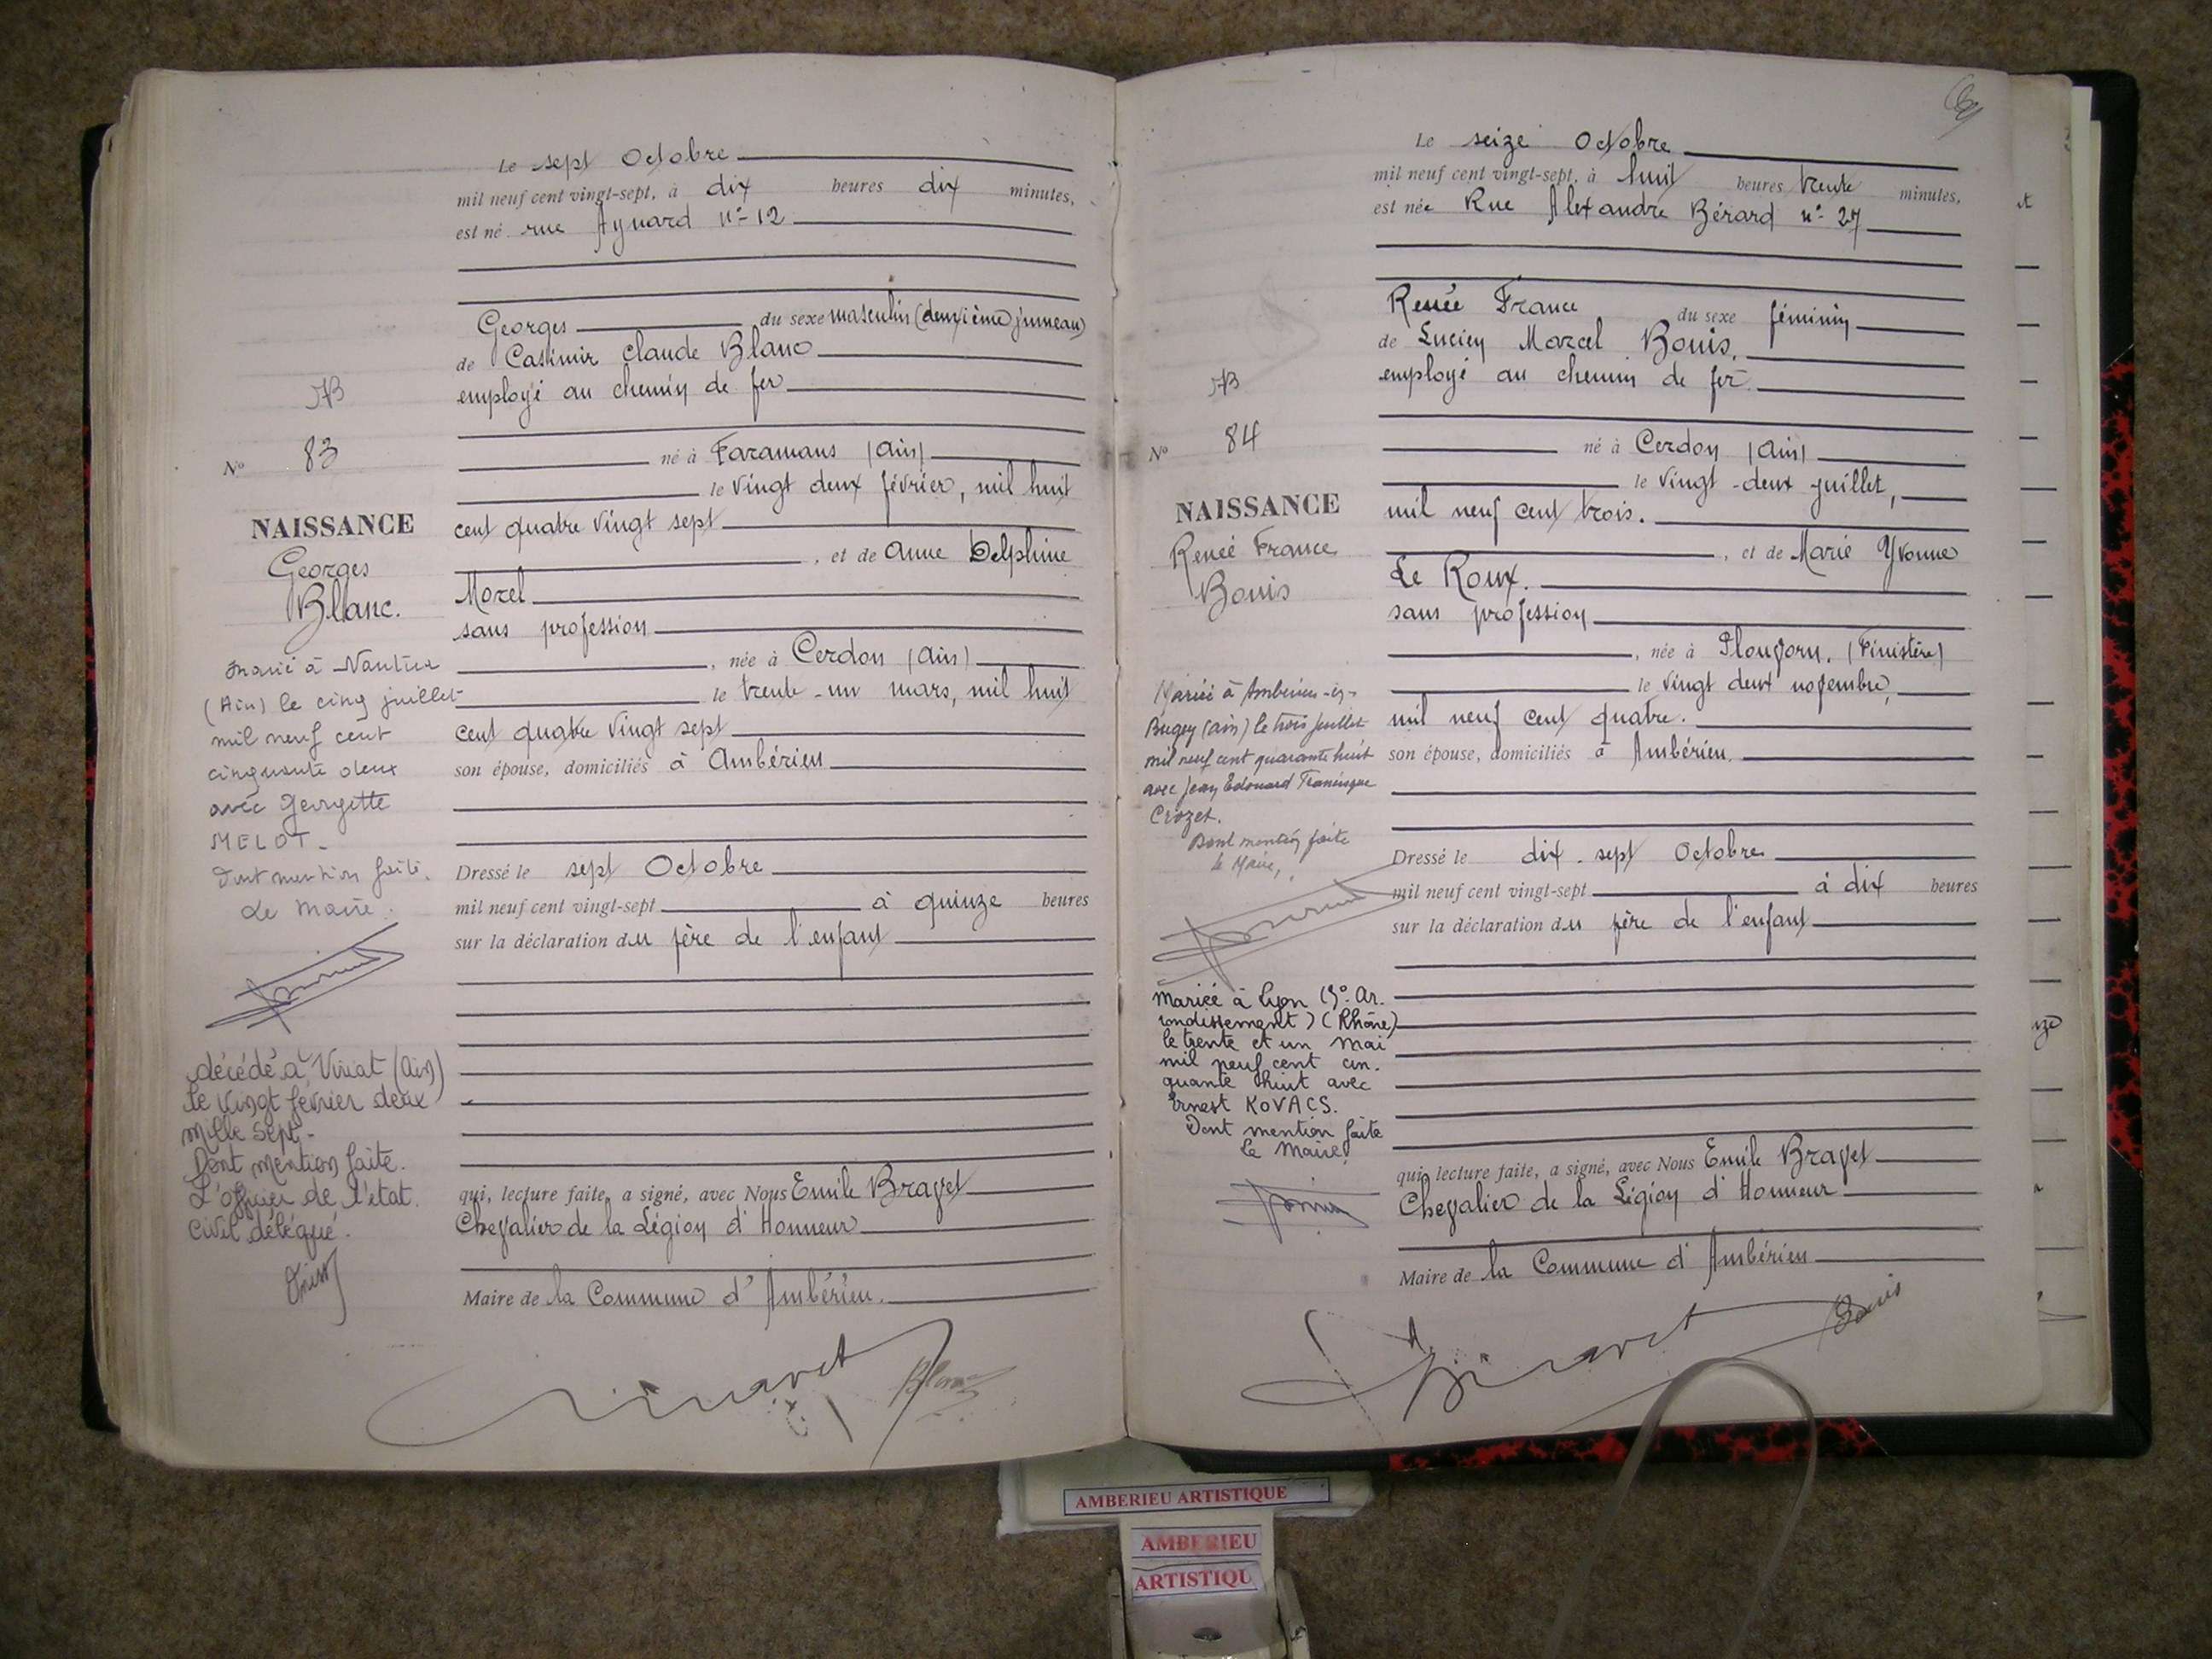 Le sept Octobre
mil neuf cent vingt-sept, à dix heures dix minutes,
est né rue Aynard n° 12
Georges du sexe masculin (deuxième jumeau)
de Casimir Claude Blanc
employé au chemin de fer
né à Faramans (Ain)
le vingt deux février, mil huit
cent quatre vingt sept
, et de Anne Delphine
Morel
sans profession
, née à Cerdon (Ain)
le trente-un mars, mil huit
cent quatre vingt sept
son épouse, domiciliés à Ambérieu
Dressé le sept Octobre
mil neuf cent vingt-sept à quinze heures
sur la déclaration du père de l'enfant
qui, lecture faite, a signé, avec Nous Emile Bravet
Chevalier de la Légion d'Honneur
Maire de la Commune d'Ambérieu.
Bravet Blanc
N° 83
NAISSANCE
Georges
Blanc.
marié à Nantua
(Ain) le cinq juillet
mil neuf cent
cinquante deux
avec Georgette
MELOT.
Dont mention faite.
Le Maire.
décédé à Viriat (Ain)
le vingt février deux
mille sept.
Dont mention faite.
L'officier de l'état.
civil délégué.
Le seize Octobre
mil neuf cent vingt-sept, à huit heures trente minutes,
est née Rue Alexandre Bérard n° 27
Renée France du sexe féminin
de Lucien Marcel Bouis,
employé au chemin de fer.
né à Cerdon (Ain)
le vingt-deux juillet,
mil neuf cent trois.
, et de Marie Yvonne
Le Roux.
sans profession
, née à Plougorn, (Finistère)
le vingt deux novembre,
mil neuf cent quatre.
son épouse, domiciliés à Ambérieu.
Dressé le dix-sept Octobre
mil neuf cent vingt-sept à dix heures
sur la déclaration du père de l'enfant
qui, lecture faite, a signé, avec Nous Emile Bravet
Chevalier de la Légion d'Honneur
Maire de la Commune d'Ambérieu
Bravet Bouis
N° 84
NAISSANCE
Renée France
Bouis
Mariée à Ambérieu-en-
Bugey (Ain) le trois juillet
mil neuf cent quarante huit
avec Jean Edouard Francisque
Crozet.
Dont mention faite
le Maire,
Mariée à Lyon Ar.
rondissement) (Rhône)
le trente et un mai
mil neuf cent cin.
quante huit avec
Ernest KOVACS.
Dont mention faite
Le Maire,
AMBERIEU ARTISTIQUE
AMBERIEU
ARTISTIQU